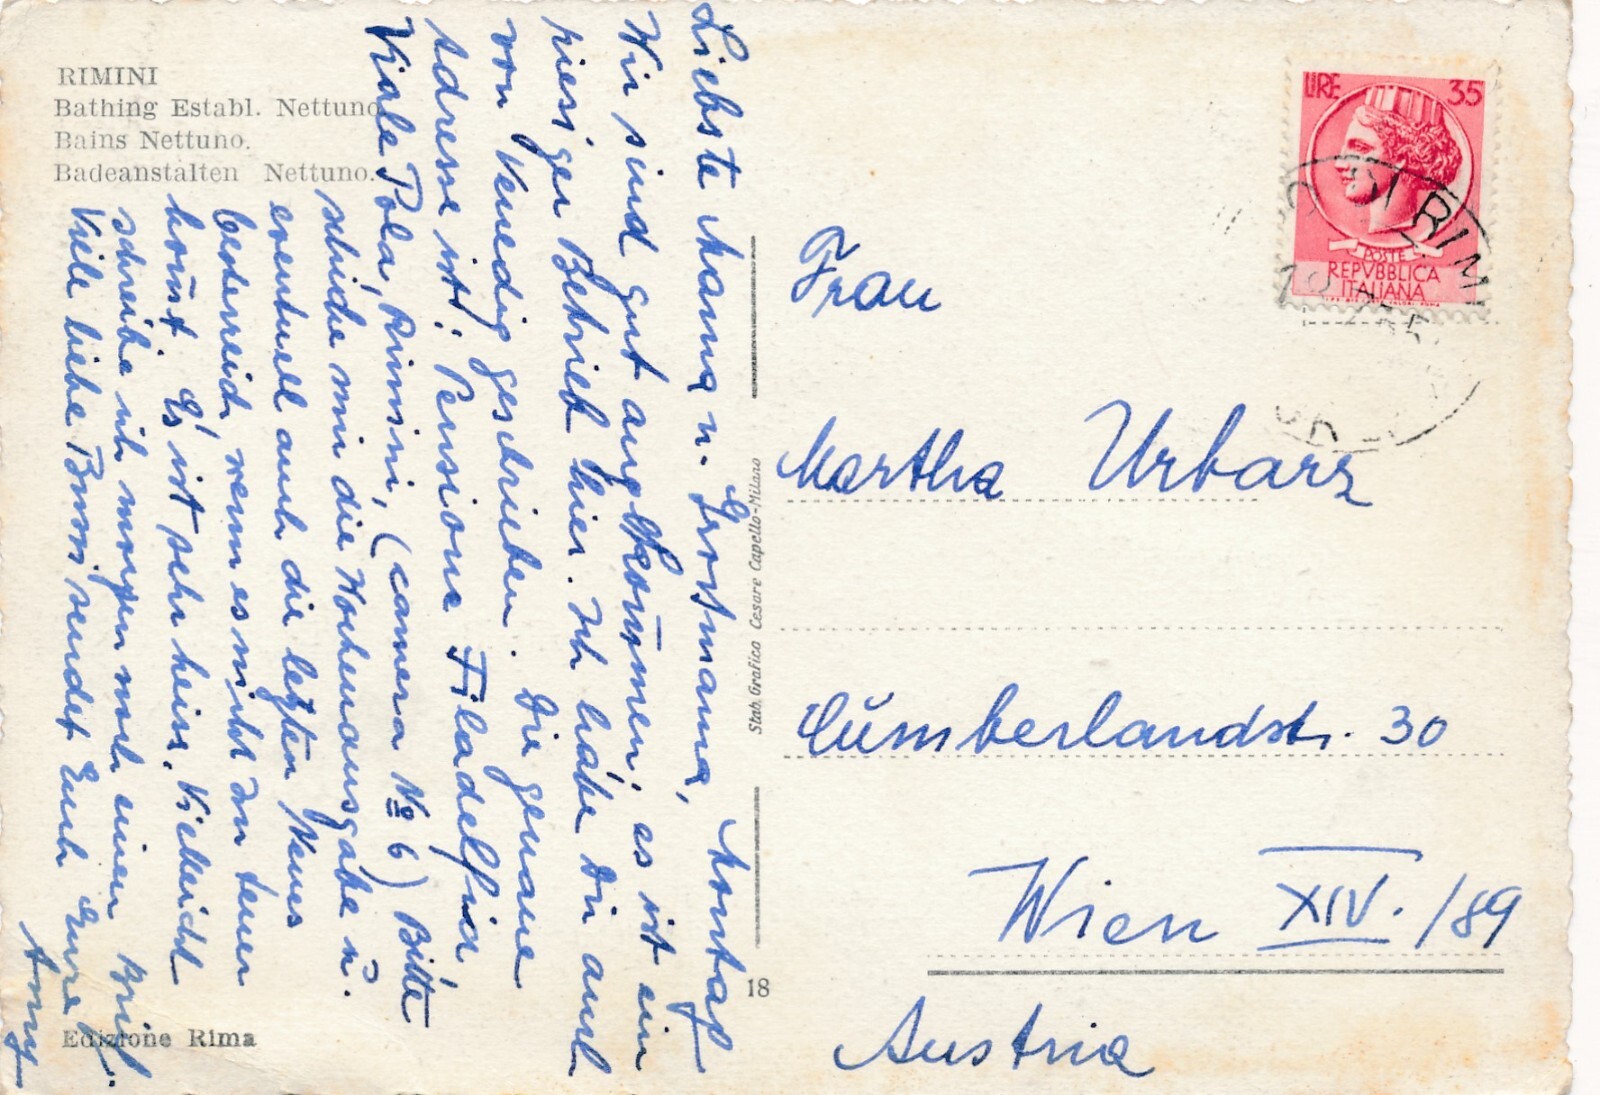 RIMINI
Bathing Establ. Nettuno
Bains Nettuno.
Badeanstalten Nettuno.
Montag
Liebste Mama u. Grossmama,
Wir sind gut angekommen, es ist ein
riesiger Betrieb hier. Ich habe Dir auch
von Venedig geschrieben. Die genaue
Adresse ist: Pensione Filadelfia,
Viale Pola, Rimini, (camera No 6) Bitte
schicke mir die Wochenausgabe u.
eventuell auch die letzten News
besterreich, wenn es nicht zu teuer
kommt. Es ist sehr heiss. Vielleicht
schreibe ich morgen noch einen Brief.
Viele liebe Bussi sendet Euch Eure
Edizione Rima
18
Stab. Grafico Cesare Capello-Milano
LIRE 35
POSTE
REPVBBLICA
ITALIANA
DI RIMI
Frau
Martha Urbarz
Cumberlandstr. 30
Wien XIV./89
Austria